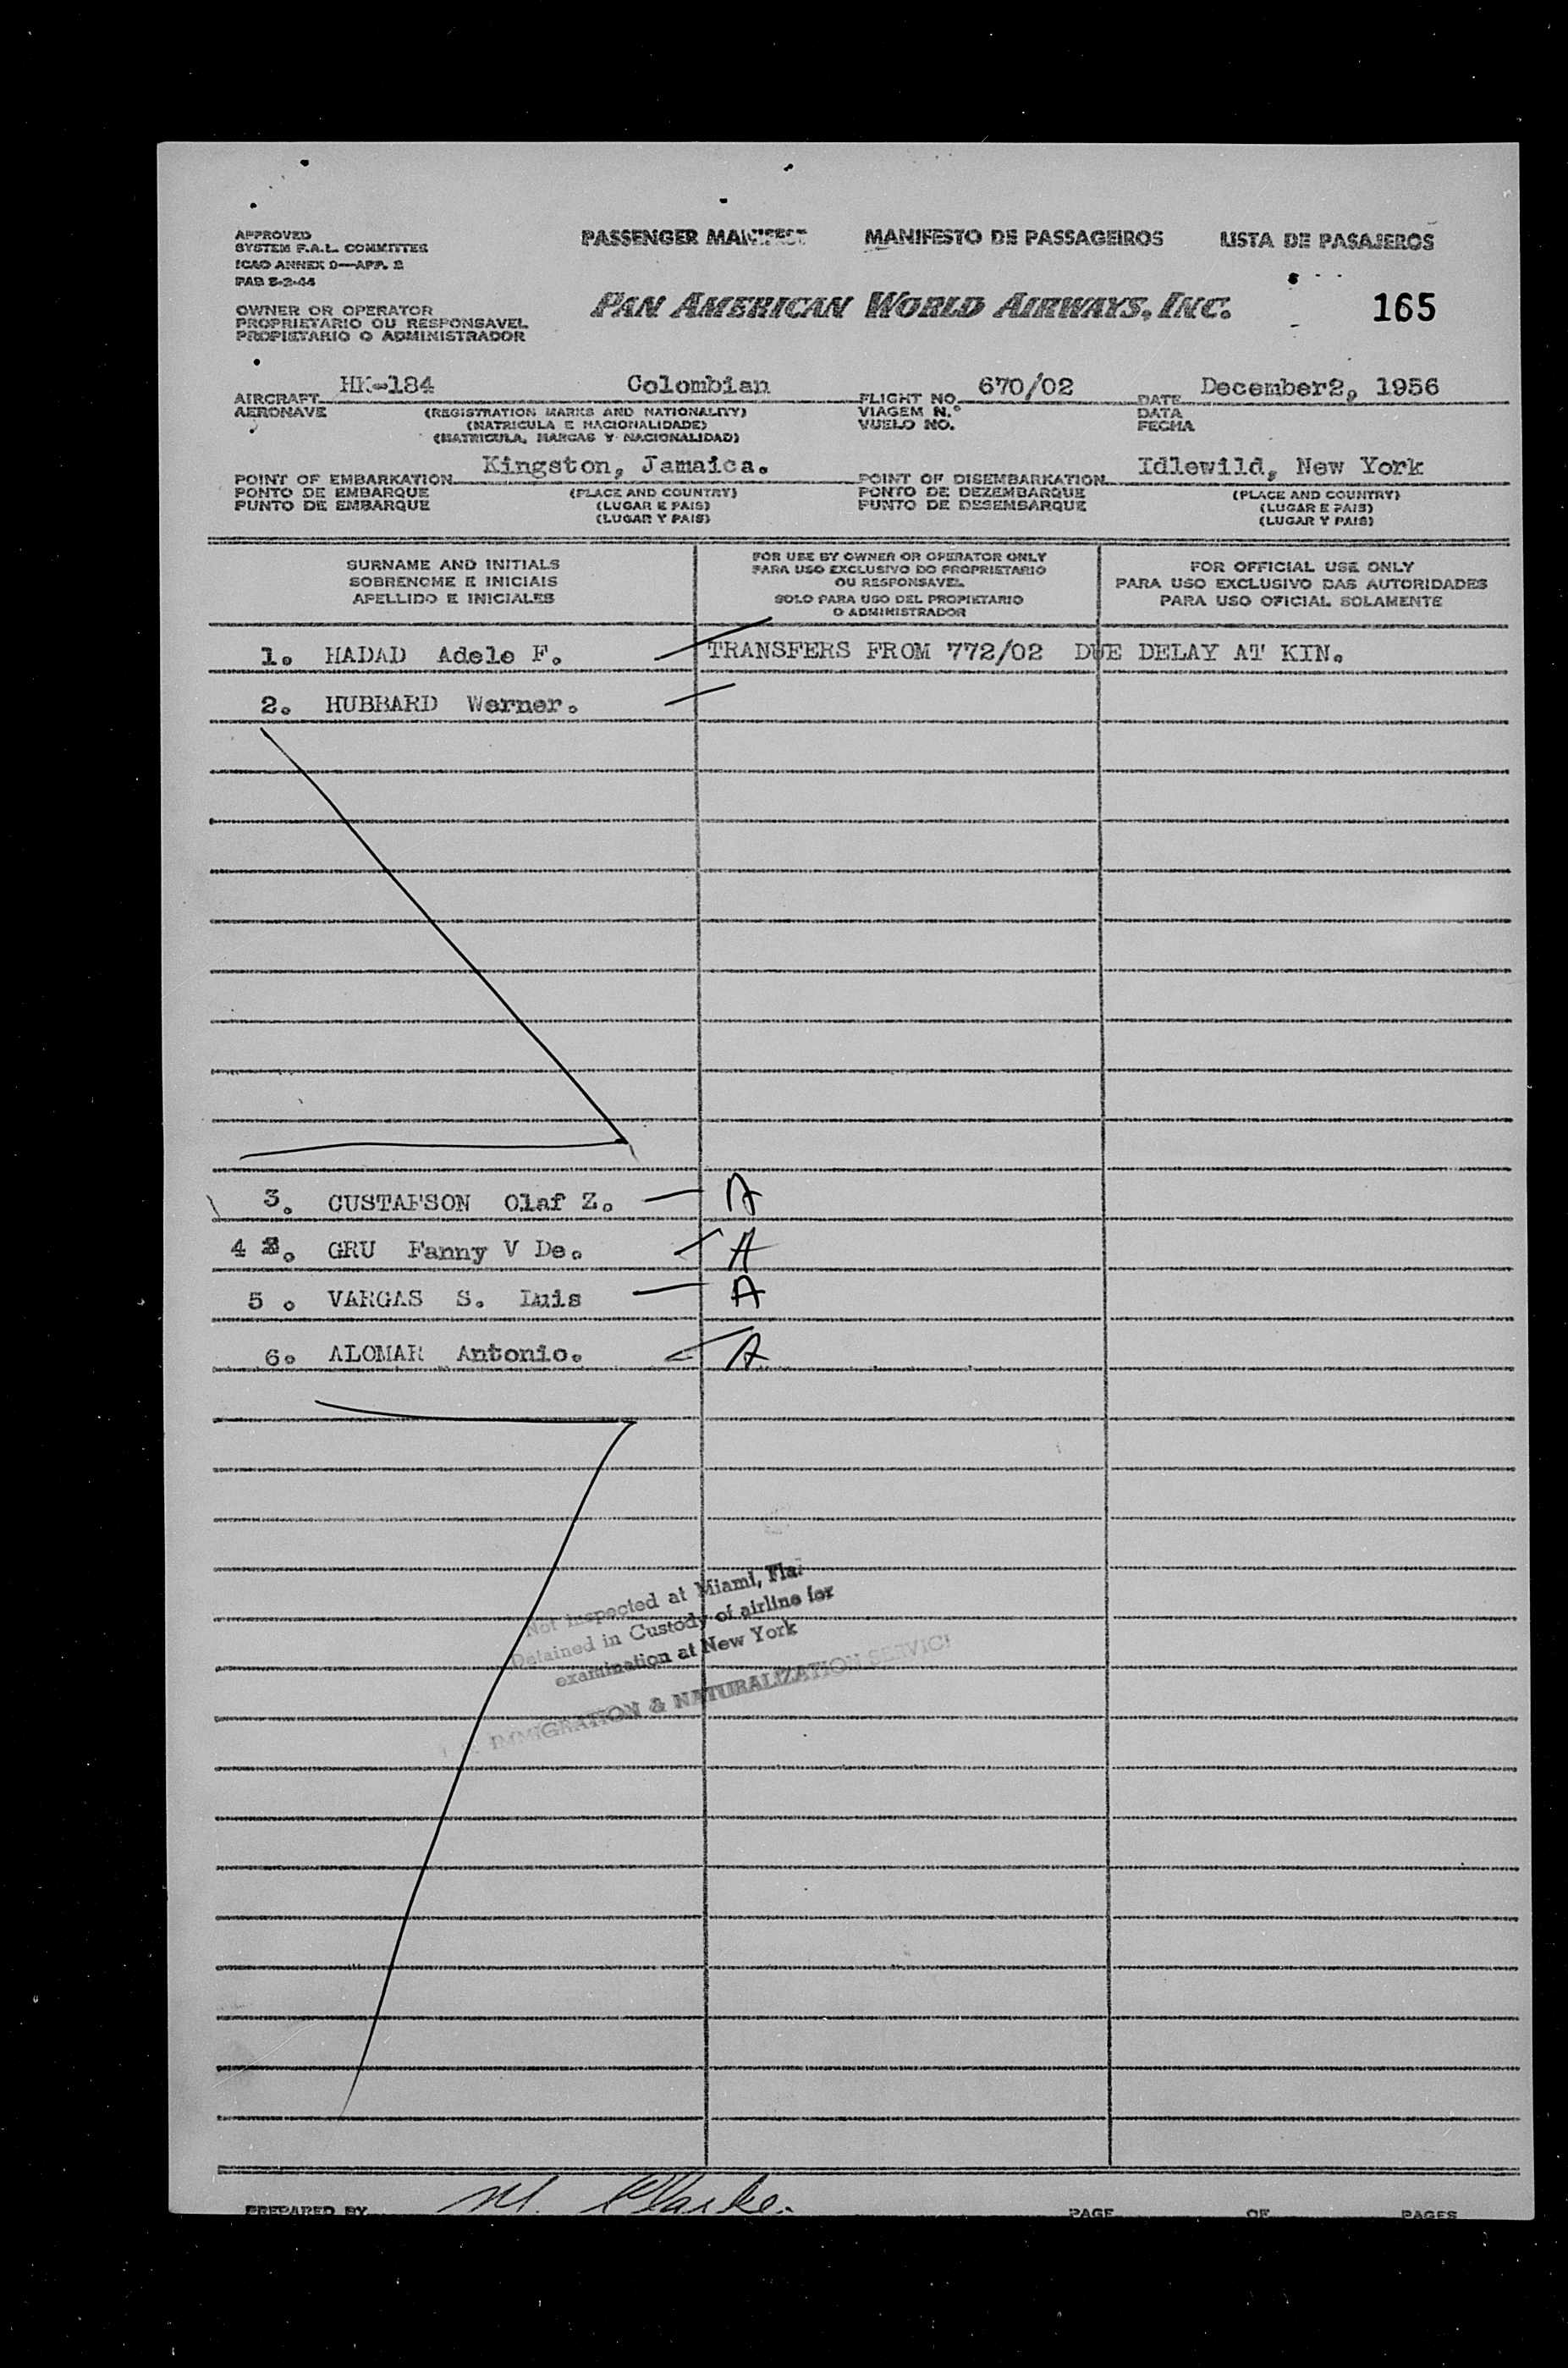 APPROVED
SYSTEM F.A.L. COMMITTEE
ICAO ANNEX 9—APP. 2
PAB 5-2-44
PASSENGER MANIFEST MANIFESTO DE PASSAGEIROS LISTA DE PASAJEROS
OWNER OR OPERATOR
PROPRIETARIO OU RESPONSAVEL
PROPIETARIO O ADMINISTRADOR
PAN AMERICAN WORLD AIRWAYS, INC. 165
AIRCRAFT HK-184 Colombian FLIGHT NO. 670/02 DATE December2, 1956
AERONAVE (REGISTRATION MARKS AND NATIONALITY) VIAGEM N.° DATA
(MATRICULA E NACIONALIDADE) VUELO NO. FECHA
(MATRICULA, MARCAS Y NACIONALIDAD)
POINT OF EMBARKATION Kingston, Jamaica. POINT OF DISEMBARKATION Idlewild, New York
PONTO DE EMBARQUE (PLACE AND COUNTRY) PONTO DE DEZEMBARQUE (PLACE AND COUNTRY)
PUNTO DE EMBARQUE (LUGAR E PAIS) PUNTO DE DESEMBARQUE (LUGAR E PAIS)
(LUGAR Y PAIS) (LUGAR Y PAIS)
SURNAME AND INITIALS
SOBRENOME E INICIAIS
APELLIDO E INICIALES
FOR USE BY OWNER OR OPERATOR ONLY
PARA USO EXCLUSIVO DO PROPRIETARIO
OU RESPONSAVEL
SOLO PARA USO DEL PROPIETARIO
O ADMINISTRADOR
FOR OFFICIAL USE ONLY
PARA USO EXCLUSIVO DAS AUTORIDADES
PARA USO OFICIAL SOLAMENTE
1. HADAD Adele F. TRANSFERS FROM 772/02 DUE DELAY AT KIN.
2. HUBBARD Werner.
3. GUSTAFSON Olaf Z. A
4 . GRU Fanny V De. A
5 . VARGAS S. Luis A
6. ALOMAR Antonio. A
Not inspected at Miami, Fla.
Detained in Custody of airline for
examination at New York
IMMIGRATION & NATURALIZATION SERVICE
PREPARED BY M. Clarke. PAGE OF PAGES